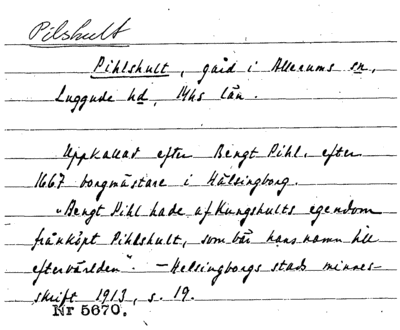 Pilshult
Pihlshult, gård i Allerums sn,
Luggude hd, Mhs län.
Uppkallad efter Bengt Pihl, efter
1667 borgmästare i Hälsingborg.
"Bengt Pihl hade af Kungshults egendom
frånköpt Pihlshult, som bär hans namn till
eftervärlden". — Helsingborgs stads minnes-
skrift 1913, s. 19.
Nr 5670.